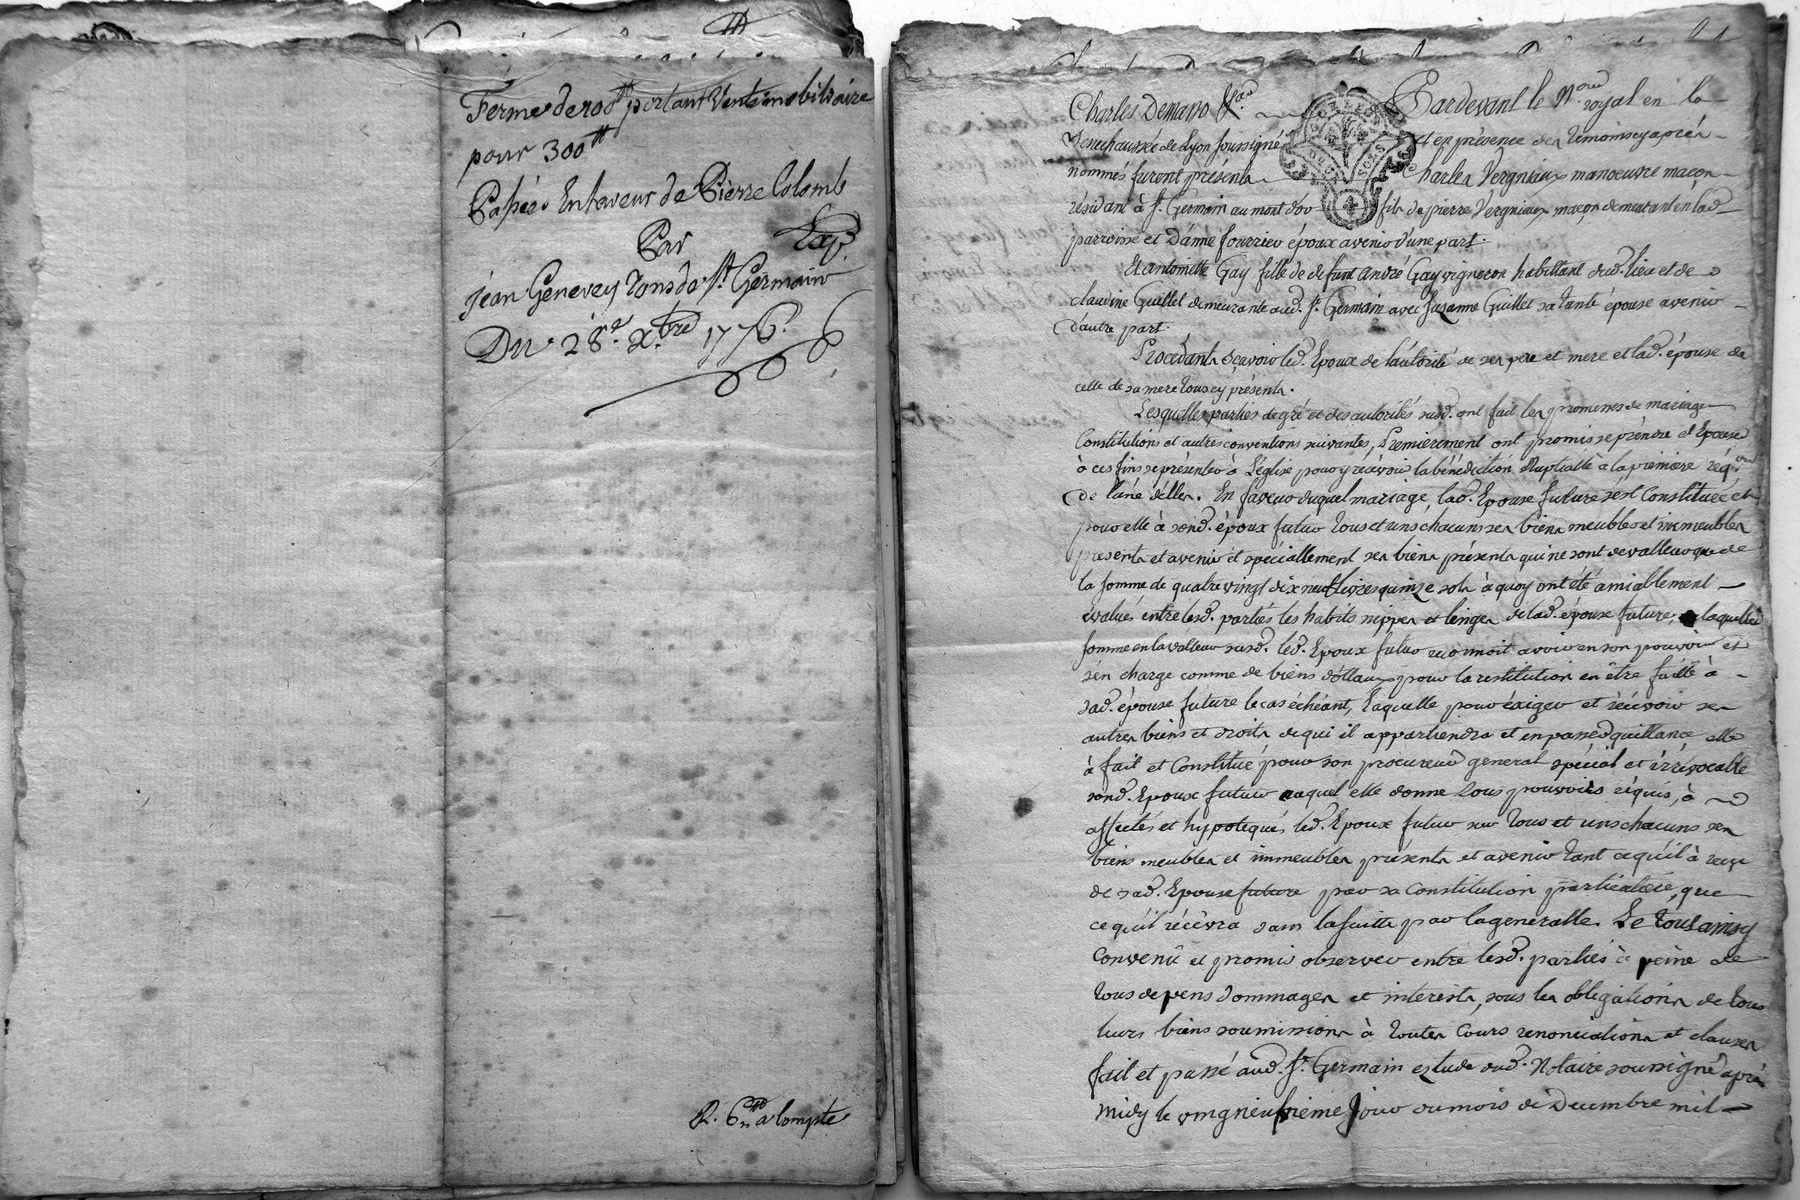 Ferme de 100# portant Vente mobiliaire
pour 300#
Passée En faveur de Pierre Colomb
Par Exp.
jean Genevey Tons de St. Germain
Du 28e. Xbre 1776.
R. 6# a Compte
Pardevant le Nore royal en la
Charles Demano
Senechaussée de Lyon soussigné et en présence des témoins cy après
nommés furent présents Charles Vergniaux manoeuvre macon
résidant à St. Germain au mont d'or fils de pierre Vergniaux maçon demeurant en lad.
parroisse et Dame fourrier époux avenir d'une part.
Et antoinette Gay fille de defunt andré Gay vigneron habittant dud. lieu et de
claudine Guillet demeurante aud. St. Germain avec suzanne Guillet sa tante épouse avenir
d'autre part.
Procédants sçavoir led. Epoux de l'autorité de ses pere et mere et lad. épouse de
celle de sa mere tous cy présents.
Lesquelles parties de gré et des autorités susd. ont fait les promesses de mariage
Constitutions et autres conventions suivantes, Premierement ont promis se prendre et Epouser
à ces fins se présenter à L'église pour y récévoir la bénédiction Nuptialle à la premiere réqon
de l'une d'elles. En faveur duquel mariage, lad. Epouse future s'est Constituée et
pour elle à sond. époux futur tous et uns chacuns ses biens meubles et immeubles
presents et avenir et spéciallement ses biens présents qui ne sont de valleur que de
la somme de quatre vingt dix neuf livres quinze sols à quoy ont été amiablement
évalués entre lesd. parties les habits nippes et linges de lad. épouse future, laquelle
somme en la valleur susd. led. Epoux futur reconnoit avoir en son pouvoir et
s'en charge comme de biens dottaux pour la restitution en être faitte à
sad. épouse future le cas échéant, Laquelle pour éxiger et récévoir ses
autres biens et droits de qui il appartiendra et en passer quittance elle
à fait et Constitué pour son procureur general spécial et irrévocable
sond. Epoux futur auquel elle donne tous pouvoirs réquis, à
affectés et hypotequés led. Epoux futur sur tous et uns chacuns ses
biens meubles et immeubles présents et avenir tant ce qu'il à reçu
de sad. Epouse future par sa Constitution particuliere, que
ce qu'il récévra dans la suitte par la generalle. Le tout ainsy
Convenû et promis observer entre lesd. parties à peine de
tous depens dommages et interests, sous les obligations de tous
leurs biens soumissions à toutes Cours renonciations et clauses
fait et passé aud. St. Germain estude dud. Notaire soussigné après
midy le vingneufvieme jour du mois de Decembre mil